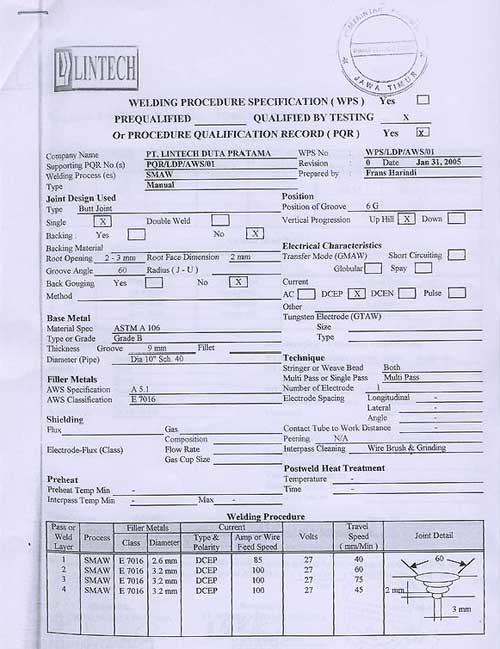 LINTECH
JAWA TIMUR
WELDING PROCEDURE SPECIFICATION ( WPS ) Yes
PREQUALIFIED QUALIFIED BY TESTING X
Or PROCEDURE QUALIFICATION RECORD ( PQR ) Yes X
Company Name PT. LINTECH DUTA PRATAMA WPS No : WPS/LDP/AWS/01
Supporting PQR No.(s) PQR/LDP/AWS/01 Revision : 0 Date Jan 31, 2005
Welding Process (es) SMAW Prepared by : Frans Harindi
Type Manual
Joint Design Used Position
Type Butt Joint Position of Groove 6 G
Single X Double Weld Vertical Progression Up Hill X Down
Backing : Yes No X
Backing Material Electrical Characteristics
Root Opening 2 - 3 mm Root Face Dimension 2 mm Transfer Mode (GMAW) Short Circuiting
Groove Angle 60 Radius ( J - U ) Globular Spay
Back Gouging Yes No X Current
Method AC DCEP X DCEN Pulse
Other
Base Metal Tungsten Electrode (GTAW)
Material Spec ASTM A 106 Size
Type or Grade Grade B Type
Thickness Groove 9 mm Fillet
Diameter (Pipe) Dia 10" Sch. 40 Technique
Stringer or Weave Bead Both
Filler Metals Multi Pass or Single Pass Multi Pass
AWS Specification A 5.1 Number of Electrode 1
AWS Classification E 7016 Electrode Spacing Longitudinal -
Lateral -
Shielding Angle -
Flux Gas Contact Tube to Work Distance -
Composition Peening N/A
Electrode-Flux (Class) Flow Rate Interpass Cleaning Wire Brush & Grinding
Gas Cup Size
Postweld Heat Treatment
Preheat Temperature -
Preheat Temp Min - Time -
Interpass Temp Min - Max -
Welding Procedure
Pass or Weld Layer Process Filler Metals Class Diameter Current Type & Polarity Amp or Wire Feed Speed Volts Travel Speed ( mm/Min ) Joint Detail
1 SMAW E 7016 2.6 mm DCEP 85 27 40
2 SMAW E 7016 3.2 mm DCEP 100 27 60
3 SMAW E 7016 3.2 mm DCEP 100 27 75
4 SMAW E 7016 3.2 mm DCEP 100 27 45
60
2 mm
3 mm